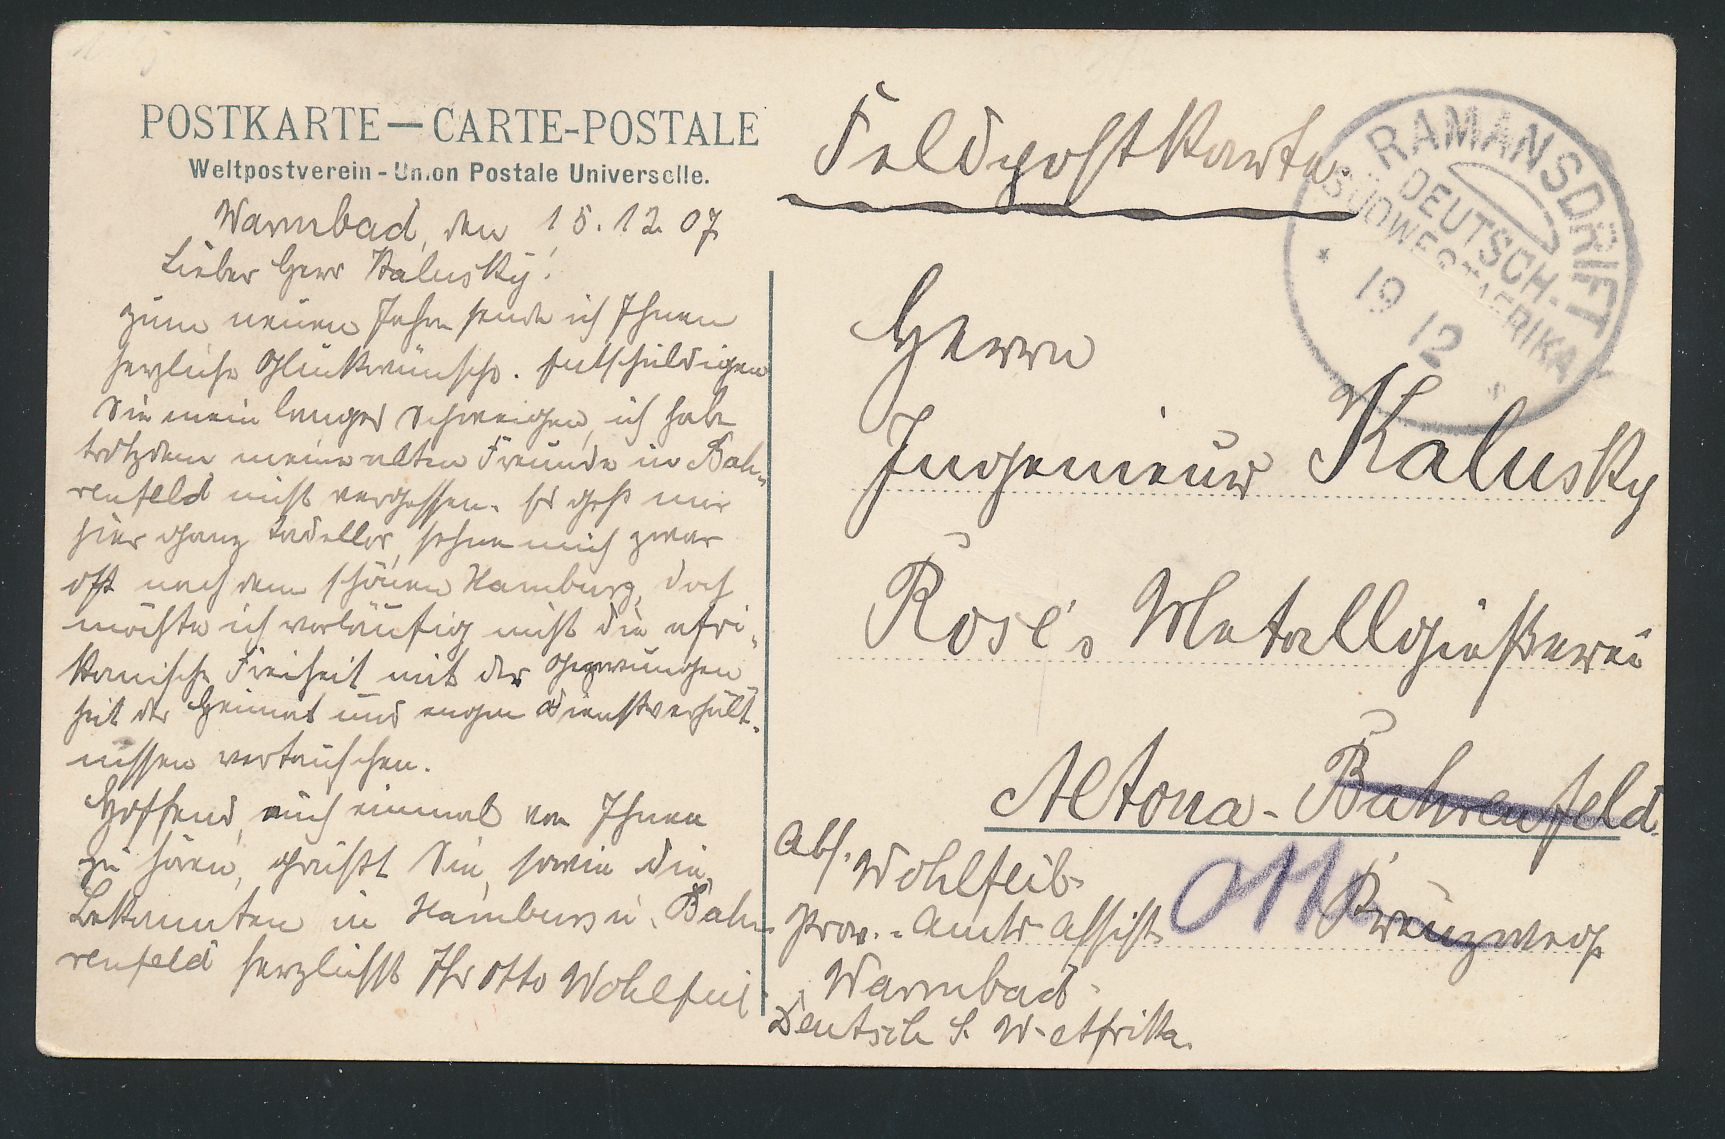 POSTKARTE — CARTE-POSTALE
Weltpostverein - Union Postale Universelle.
Warmbad, den 15.12.07
Lieber Herr Kalusky!
zum neuen Jahre sende ich Ihnen
herzliche Glückwünsche. Entschuldigen
Sie mein langes Schweigen, ich habe
trotzdem meine alten Freunde in Bah-
renfeld nicht vergessen. Es geht mir
hier ganz tadellos, sehne mich zwar
oft nach dem schönen Hamburg, doch
möchte ich vorläufig nicht die afri-
kanische Freiheit mit der Gezwungen-
heit der Heimat und engen Dienstverhält-
nissen vertauschen.
Hoffend, auch einmal von Ihnen
zu hören, grüßt Sie, sowie die
Bekannten in Hamburg u. Bah-
renfeld herzlichst Ihr Otto Wohlfeil
Feldpostkarte
RAMANSDRIFT
DEUTSCH-
SÜDWESTAFRIKA
19 12
Herrn
Ingenieur Kalusky
Rose's Metallgießerei
Altona-Bahrenfeld
Kreuzweg
Abs. Wohlfeil
Prov.-Amts Assist.
Warmbad
Deutsch S. W-Afrika.